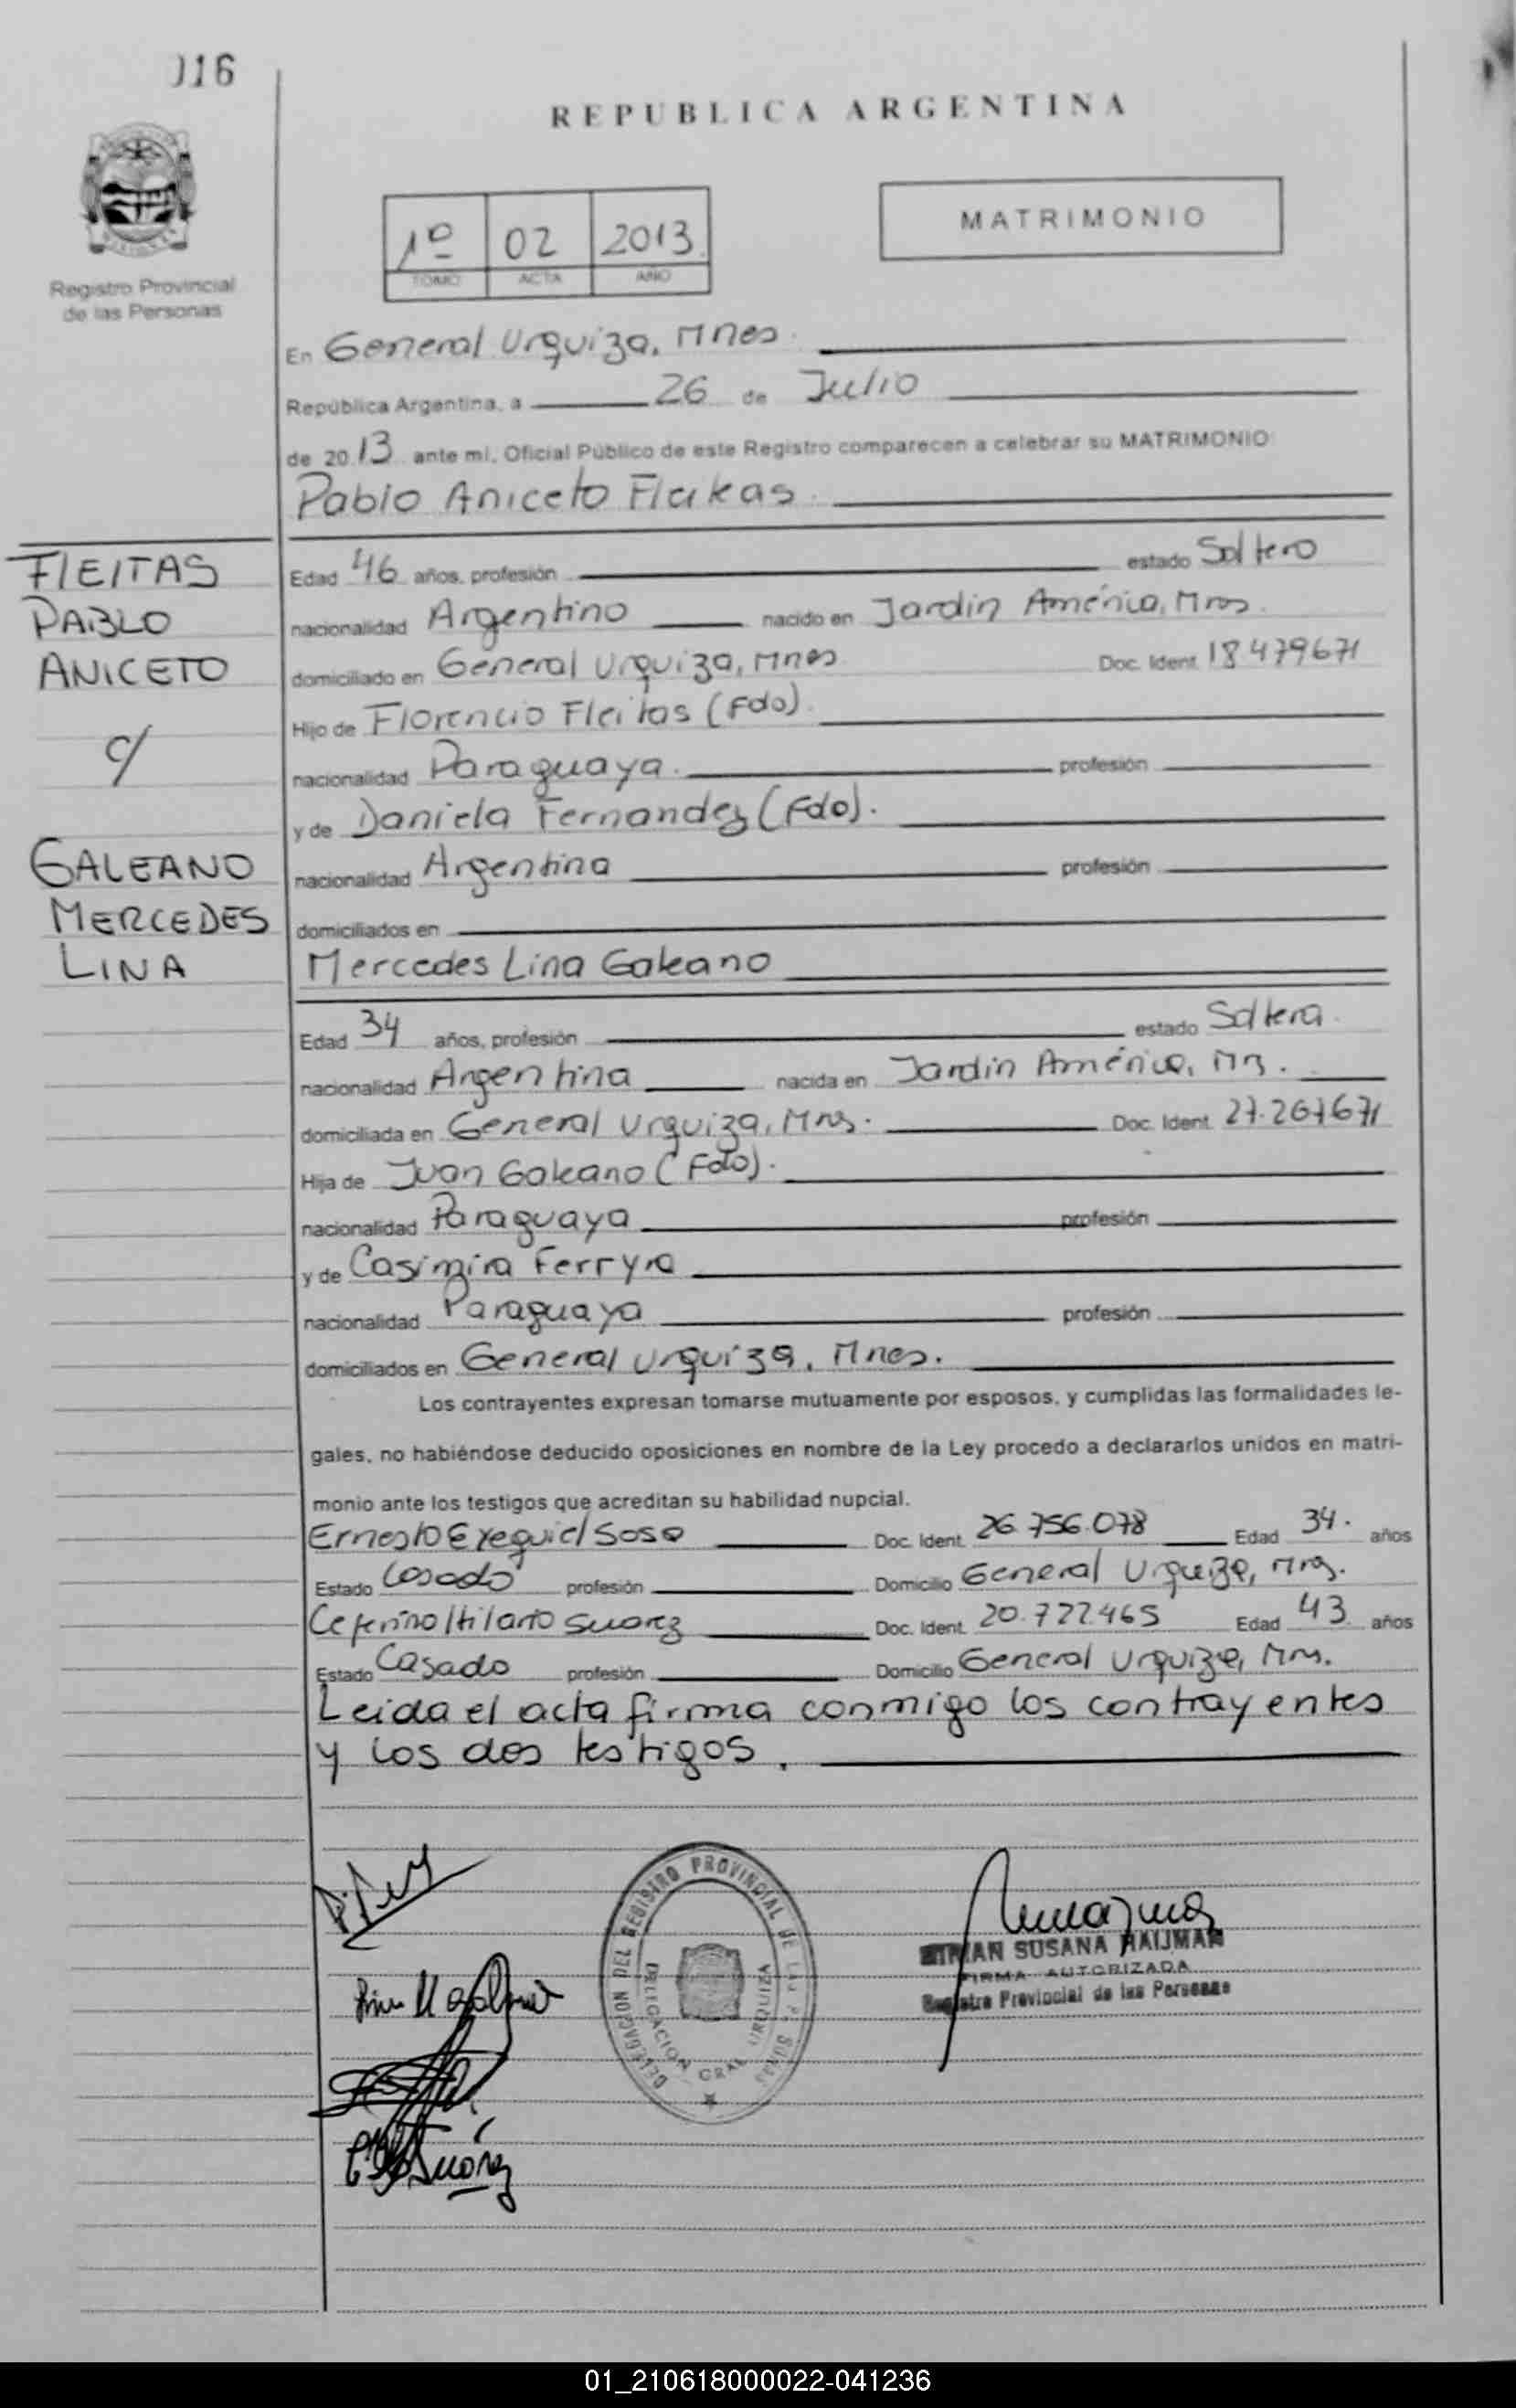 116
REPUBLICA ARGENTINA
Registro Provincial
de las Personas
1º 02 2013
TOMO ACTA AÑO
MATRIMONIO
En General Urquiza, Mnes.
República Argentina, a 26 de Julio
de 2013 ante mi, Oficial Público de este Registro comparecen a celebrar su MATRIMONIO:
Pablo Aniceto Fleitas.
FLEITAS
PABLO
ANICETO
c/
GALEANO
MERCEDES
LINA
Edad 46 años, profesión estado Soltero
nacionalidad Argentino nacido en Jardin América, Mnes.
domiciliado en General Urquiza, Mnes Doc. Ident. 18479671
Hijo de Florencio Fleitas (Fdo).
nacionalidad Paraguaya. profesión
y de Daniela Fernandez (Fdo).
nacionalidad Argentina profesión
domiciliados en
Mercedes Lina Galeano
Edad 34 años, profesión estado Soltera.
nacionalidad Argentina nacida en Jardin América, Mns.
domiciliada en General Urquiza, Mns. Doc. Ident. 27.267671
Hija de Juan Galeano (Fdo).
nacionalidad Paraguaya profesión
y de Casimira Ferryra
nacionalidad Paraguaya profesión
domiciliados en General Urquiza, Mnes.
Los contrayentes expresan tomarse mutuamente por esposos, y cumplidas las formalidades le-
gales, no habiéndose deducido oposiciones en nombre de la Ley procedo a declararlos unidos en matri-
monio ante los testigos que acreditan su habilidad nupcial.
Ernesto Exequiel Sosa Doc. Ident. 26.756.078 Edad 34. años
Estado Casado profesión Domicilio General Urquiza, Mns.
Ceferino Hilario Suarez Doc. Ident. 20.722465 Edad 43 años
Estado Casado profesión Domicilio General Urquiza, Mns.
Leida el acta firma conmigo los contrayentes
y los dos testigos.
DELEGACION DEL REGISTRO PROVINCIAL DE LAS PERSONAS
DELEGACION GRAL URQUIZA
MIRIAN SUSANA HAIJMAN
FIRMA AUTORIZADA
Registro Provincial de las Personas
Suárez
01_210618000022-041236